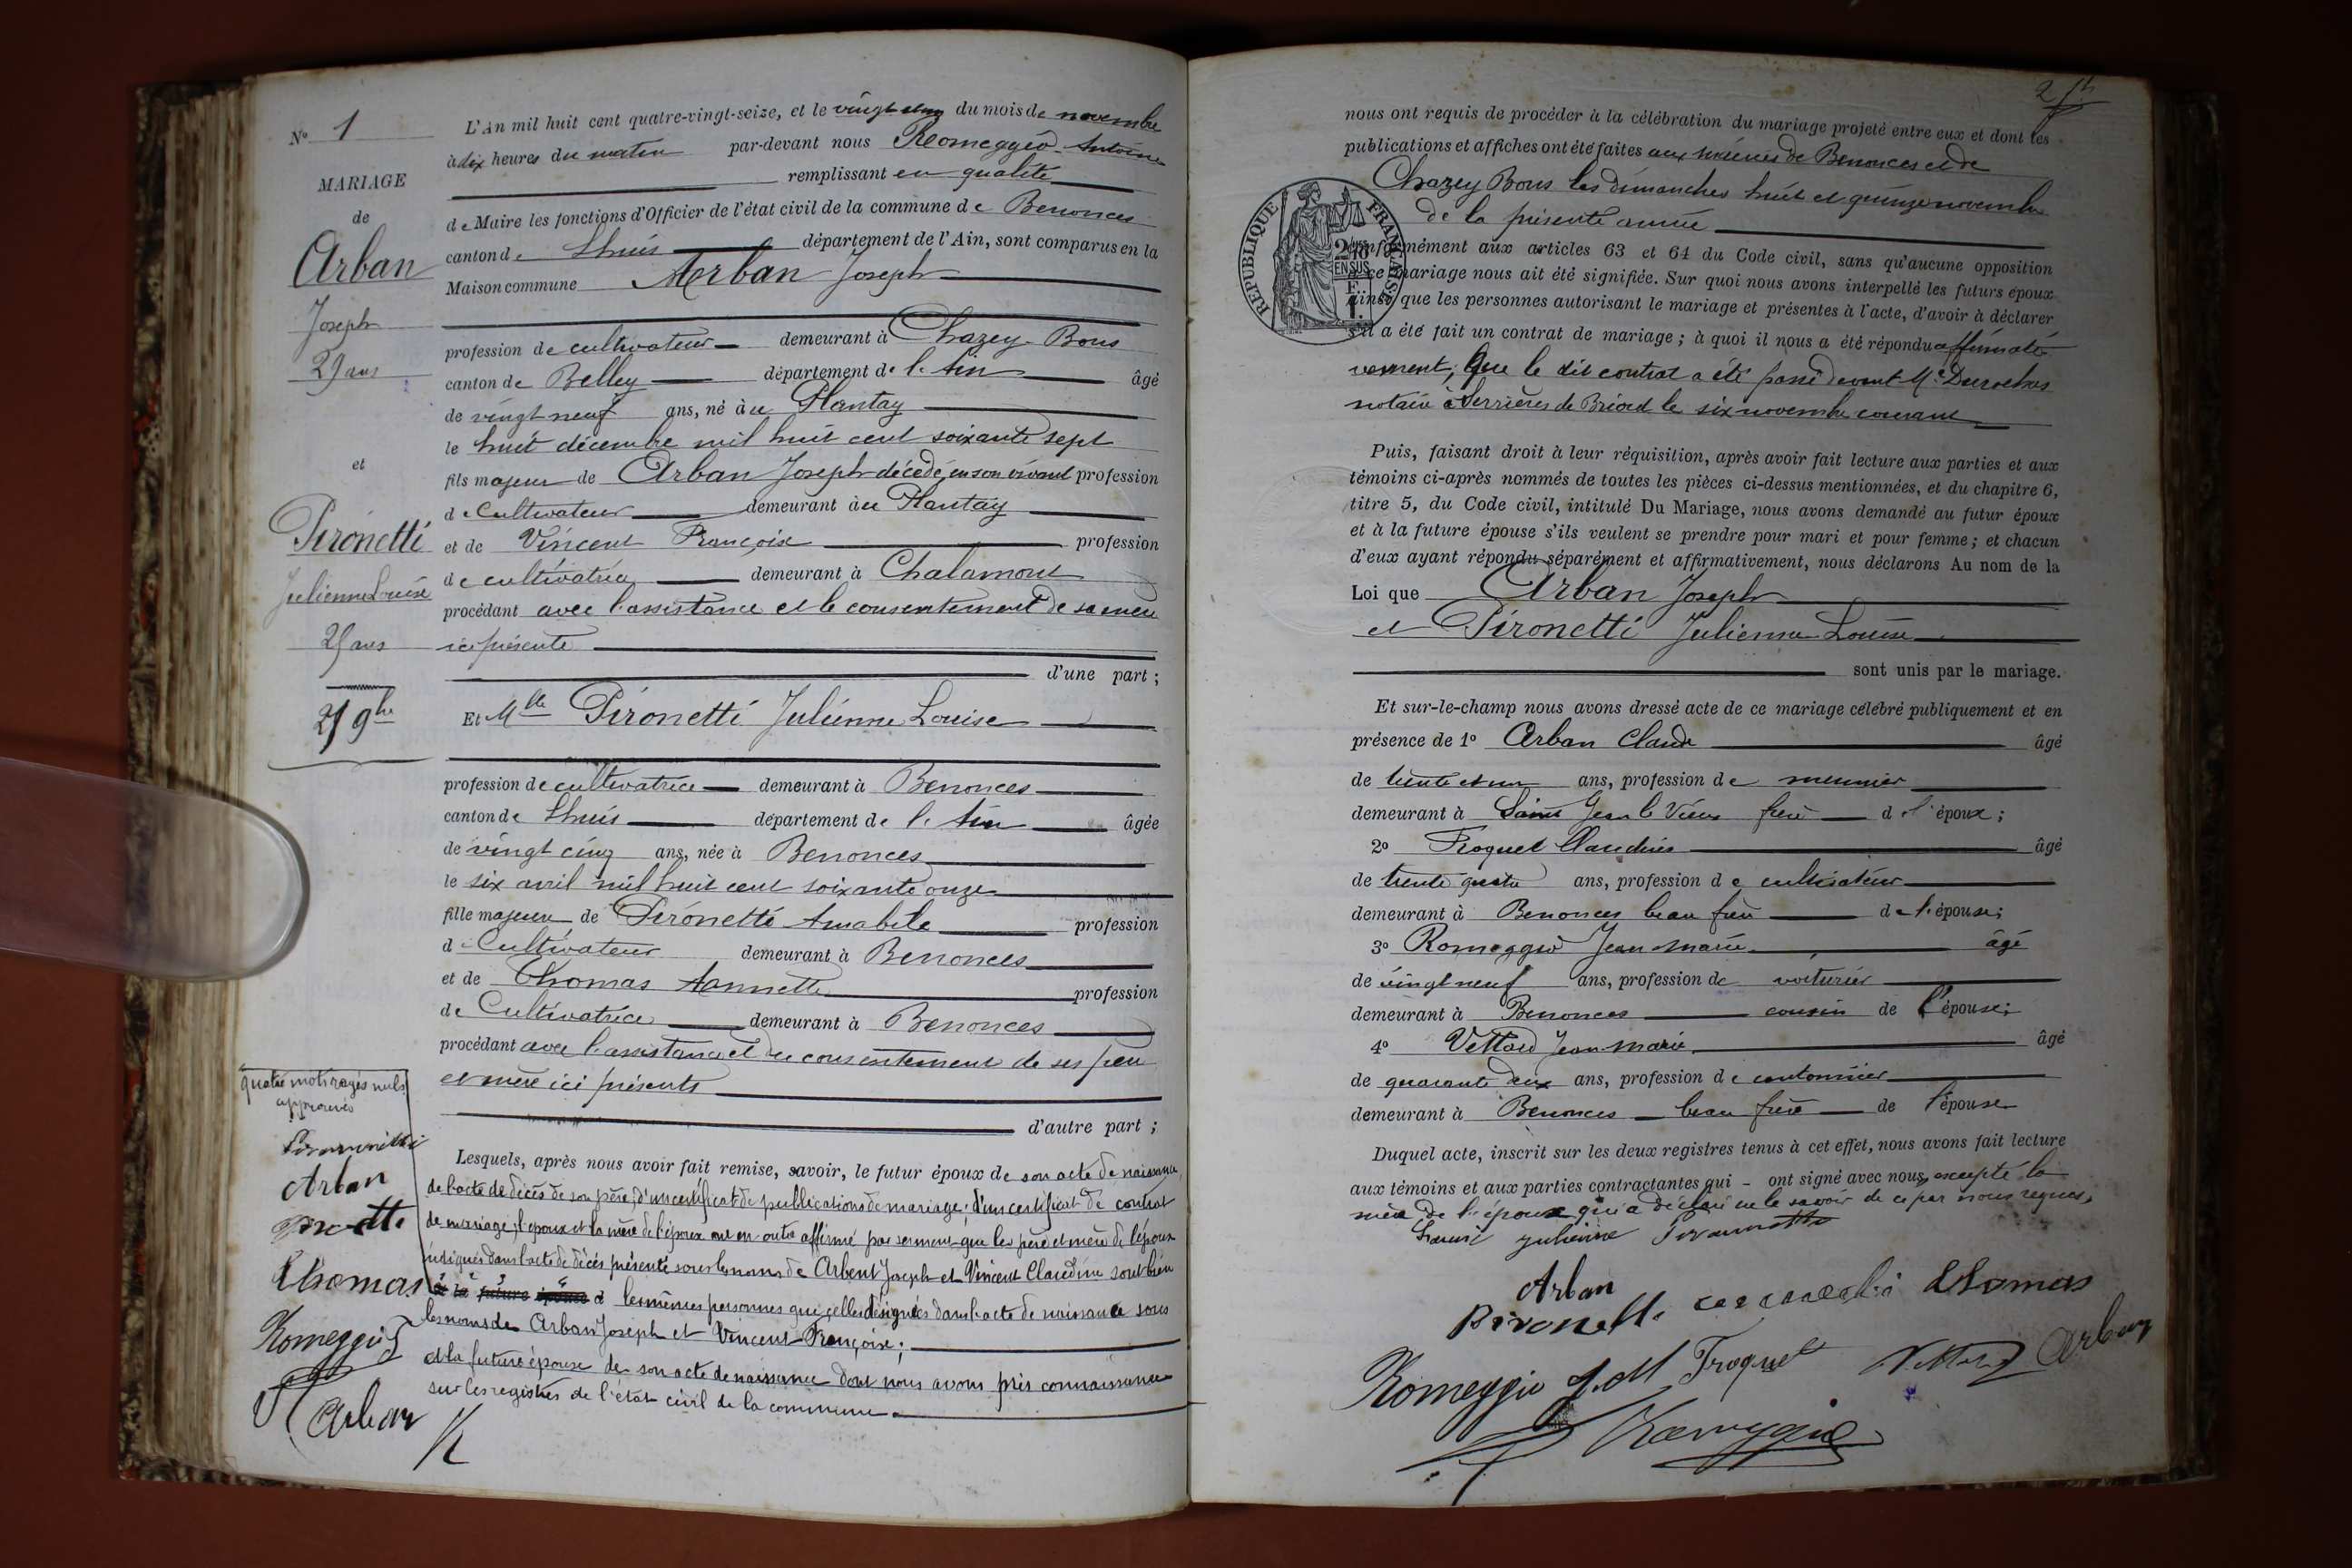 N° 1
MARIAGE
de
Arban
Joseph
29 ans
et
Pironetti
Julienne Louise
25 ans
9bre
quatre mots rayés nuls
approuvés
Arban
Thomas
Romeggio
Arban
L'An mil huit cent quatre-vingt-seize, et le vingt du mois de novembre
à dix heures du matin par-devant nous Romeggio Antoine
remplissant en qualité
de Maire les fonctions d'Officier de l'état civil de la commune de Benonces
canton de Lhuis département de l'Ain, sont comparus en la
Maison commune Arban Joseph
profession de cultivateur demeurant à Chazey-Bons
canton de Belley département de l'Ain âgé
de vingt neuf ans, né à u Plantay
le huit décembre mil huit cent soixante sept
fils majeur de Arban Joseph décédé, en son vivant profession
de Cultivateur demeurant à u Plantay
et de Vincent Françoise profession
de cultivatrice demeurant à Chalamont
procédant avec l'assistance et le consentement de sa mère
ici présente
d'une part ;
Et Mlle Pironetti Julienne Louise
profession de cultivatrice demeurant à Benonces
canton de Lhuis département de l'Ain âgée
de vingt cinq ans, née à Benonces
le six avril mil huit cent soixante onze
fille majeure de Pironetti Amabile profession
de Cultivateur demeurant à Benonces
et de Thomas Annette profession
de Cultivatrice demeurant à Benonces
procédant avec l'assistance et du consentement de ses père
et mère ici présents
d'autre part ;
Lesquels, après nous avoir fait remise, savoir, le futur époux de son acte de naissance,
de l'acte de décès de son père, d'un certificat de publications de mariage ; d'un certificat de contrat
de mariage ; l'époux et la mère de l'époux ont en outre affirmé par serment que les père et mère de l'époux
indiqués dans l'acte de décès présenté sous les noms de Arbent Joseph et Vincent Claudine sont bien
à la future épouse d les mêmes personnes que celles désignées dans l'acte de naissance sous
les noms de Arban Joseph et Vincent Françoise ;
et la future épouse de son acte de naissance dont nous avons pris connaissance
sur les registres de l'état civil de la commune
nous ont requis de procéder à la célébration du mariage projeté entre eux et dont les
publications et affiches ont été faites aux mairies de Benonces et de
Chazey Bons les dimanches huit et quinze novembre
de la présente année
REPUBLIQUE FRANÇAISE
2/10 EN SUS
conformément aux articles 63 et 64 du Code civil, sans qu'aucune opposition
à ce mariage nous ait été signifiée. Sur quoi nous avons interpellé les futurs époux
ainsi que les personnes autorisant le mariage et présentes à l'acte, d'avoir à déclarer
s'il a été fait un contrat de mariage ; à quoi il nous a été répondu affirmati-
vement, que le dit contrat a été passé devant Me
notaire à Serrières de Briord le six novembre courant
Puis, faisant droit à leur réquisition, après avoir fait lecture aux parties et aux
témoins ci-après nommés de toutes les pièces ci-dessus mentionnées, et du chapitre 6,
titre 5, du Code civil, intitulé Du Mariage, nous avons demandé au futur époux
et à la future épouse s'ils veulent se prendre pour mari et pour femme ; et chacun
d'eux ayant répondu séparément et affirmativement, nous déclarons Au nom de la
Loi que Arban Joseph
et Pironetti Julienne Louise
sont unis par le mariage.
Et sur-le-champ nous avons dressé acte de ce mariage célébré publiquement et en
présence de 1° Arban Claude âgé
de trente et un ans, profession de meunier
demeurant à Saint Jean le Vieux frère de l'époux ;
2° Troquet Claudius âgé
de trente quatre ans, profession de cultivateur
demeurant à Benonces beau frère de l'épouse ;
3° Romeggio Jean-Marie âgé
de vingt neuf ans, profession de voiturier
demeurant à Benonces cousin de l'épouse ;
4° Vettard Jean-Marie âgé
de quarante deux ans, profession de cantonnier
demeurant à Benonces beau frère de l'épouse
Duquel acte, inscrit sur les deux registres tenus à cet effet, nous avons fait lecture
aux témoins et aux parties contractantes qui - ont signé avec nous, excepté la
mère de l'époux qui a déclaré ne le savoir de ce par nous requise
julienne
Arban
Pironetti Thomas
Romeggio J. M Troquet Vettard Arban
Romeggio